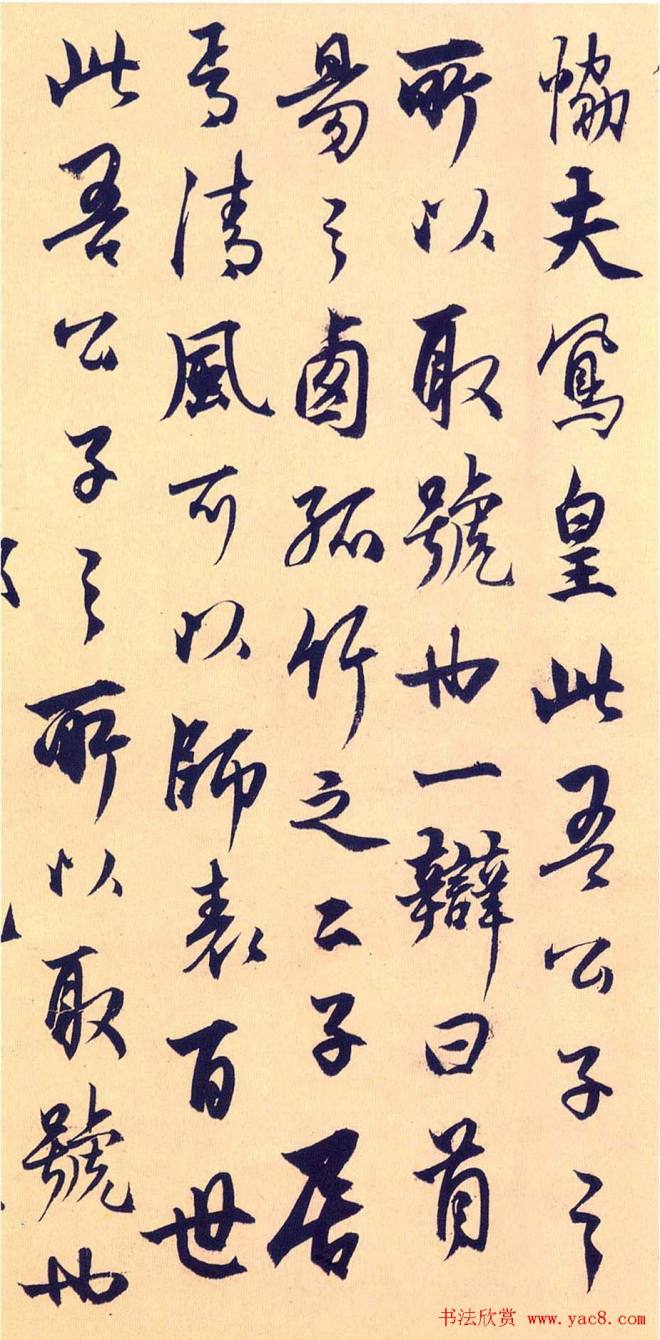 恊夫鳳皇此吾公子之
所以取號也一辯曰首
昜之鹵孤竹之二子居
焉清風可以師表百世
此吾公子之所以取號也
书法欣赏 www.yac8.com